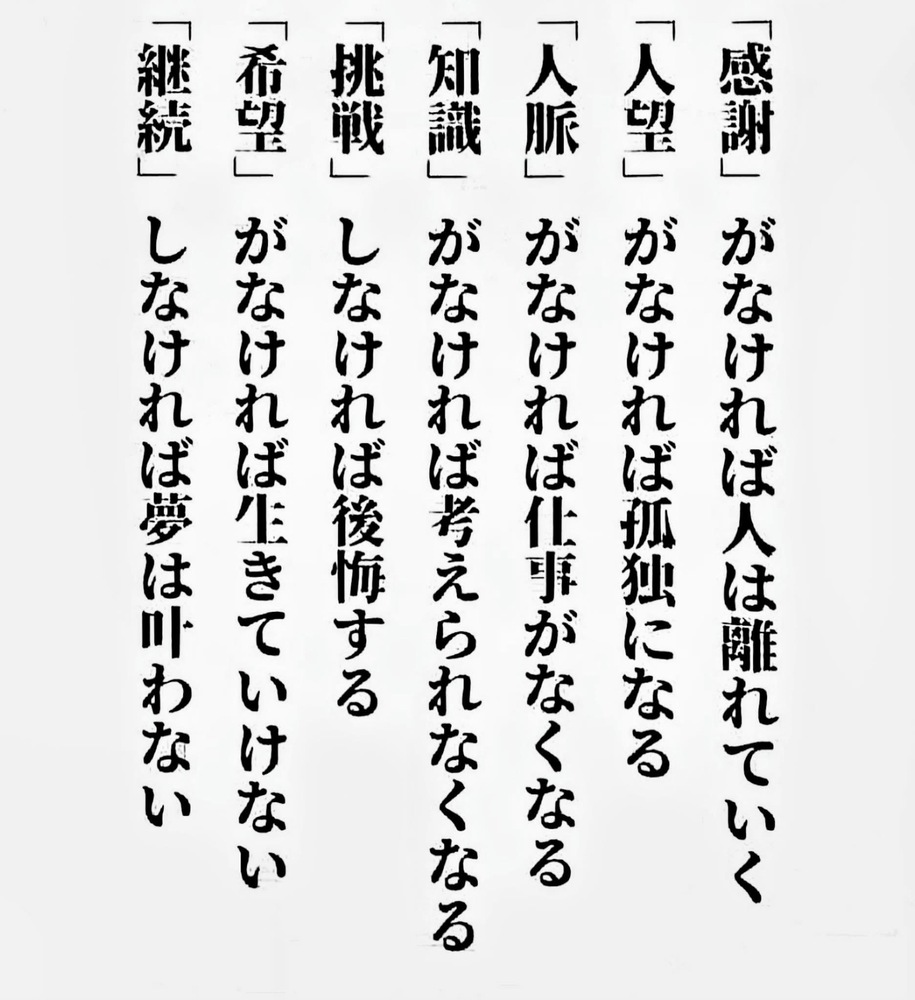 「感謝」がなければ人は離れていく
「人望」がなければ孤独になる
「人脈」がなければ仕事がなくなる
「知識」がなければ考えられなくなる
「挑戦」しなければ後悔する
「希望」がなければ生きていけない
「継続」しなければ夢は叶わない